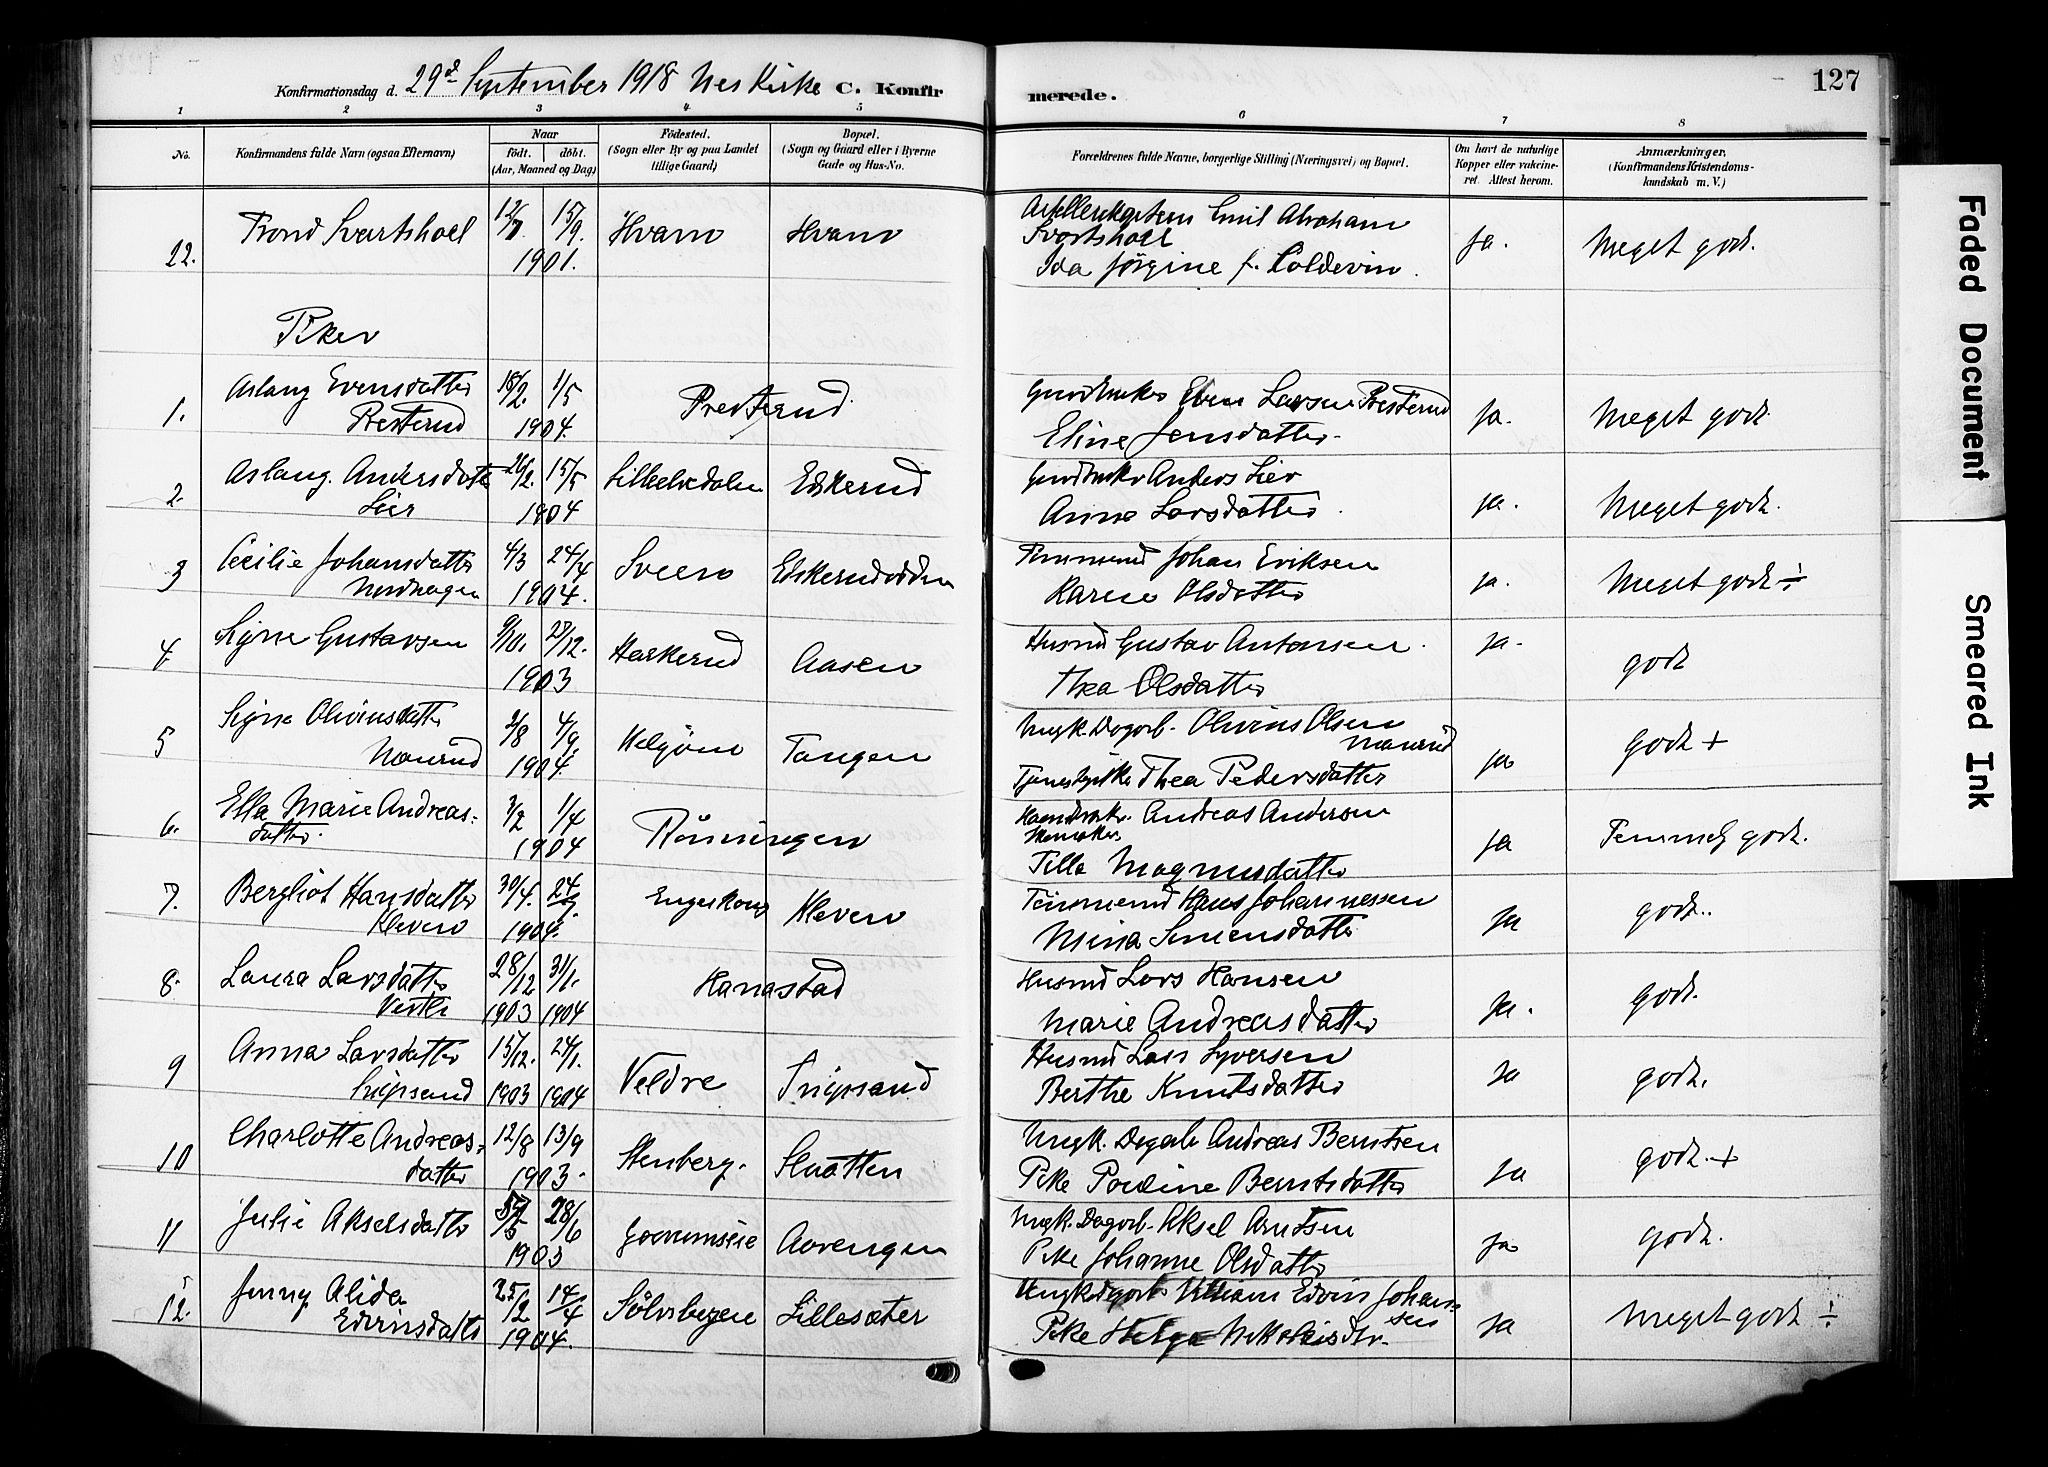 Konfirmationsdag d. 29de September 1918 Nes Kirke C. Konfir
merede. 127
1 2 3 4 5 6 7 8
No. Konfirmandens fulde Navn (ogsaa Efternavn) Naar født. døbt. (Aar, Maaned og Dag) Fødested. (Sogn eller By og paa Landet tillige Gaard) Bopæl. (Sogn og Gaard eller i Byerne Gade og Hus-No.
Forældrenes fulde Navne, borgerlige Stilling (Næringsvei) og Bopæl. Om havt de naturlige Kopper eller vakcineret. Attest herom. Anmærkninger. (Konfirmandens Kristendomskundskab m. V.)
22. Trond Svartshoel 12/7 15/9 1901. Hvam Hvam
Emil Abraham
Svartshoel
Ida Jørgine f. Coldevin. Ja. Meget godt.
Piker
1. Aslaug Evensdatter
Presterud 18/2. 1/5 1904. Presterud
Gaardbruker Even Larsen Presterud
Eline Jensdatter. Ja. Meget godt.
2. Aslaug Andersdatter
Lier 26/2. 15/5 1904 Lillehvedalen Eskerud
Gaardbruker Anders Lier
Anne Larsdatter. ja. Meget godt.
3 Cecilie Johansdatter
Nordhagen 4/3 24/4 1904. Sveen Eskerudodden
Tømmerm Johan Eriksen
Karen Olsdatter ja. Meget godt ÷
4. Signe Gustavsen 9/10. 27/12. 1903 Harkerud Aasen
Husmd Gustav Antonsen.
Thea Olsdatter ja. godt
5 Signe Olivinsdatter
Manrud 2/8 4/9. 1904. Helgøen Tangen
Ungk. Dagarb. Olivius Olsen
Manrud
Thea Pedersdatter ja godt +
6. Ella Marie Andreas-
datter. 3/2 1/4 1904 Rønningen
Andreas Andersen
Skomaker.
Tilla Magnusdatter Ja Temmelig godt.
7. Bergliot Hansdatter
Kleven 30/4. 24/7. 1904. Kleven
Tømmermd Hans Johannessen
Mina Simensdatter Ja godt..
8. Laura Larsdatter
Vestli 28/12 1903 31/1. 1904 Hanastad
Husmd Lars Hansen
Marie Andreasdatter Ja. godt.
9 Anna Larsdatter
15/12. 1903 24/1. 1904 Veldre
Husmd Lars Syversen
Berthe Knutsdatter Ja godt.
10 Charlotte Andreas-
datter 12/8 13/9 1903. Stenberg. Slaatten
Ungk. Dagarb Andreas Berntsen
Pike Pauline Berntsdatter Ja godt. +
11 Julie Akselsdatter 28/6 1903 Aavengen
Ungk. Dagarb. Aksel Arntsen
Pike Johanne Olsdatter ja godt.
12. Jenny Alida
Edvinsdatter 25/2 14/4 1904. Sølvsbergeie Lillesæter
Ungk dagarb William Edvin Johan-
sen
Pike Helga ja Meget godt ÷
Faded Document
Smeared Ink